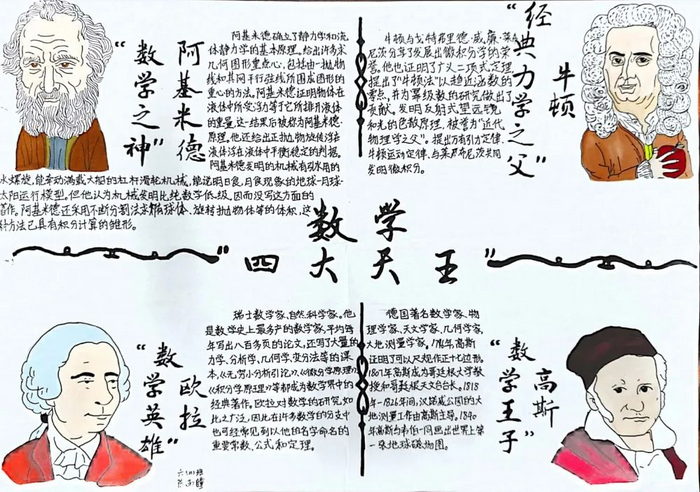 "数学之神"
阿基米德
阿基米德确立了静力学和流
体静力学的基本原理。给出许多求
几何图形重心,包括由一抛物
线和其网平行弦线所围成图形的
重心的方法。阿基米德证明物体在
液体中所受浮力等于它所排开液体
的重量,这一结果后被称为阿基米德
原理。他还给出正抛物旋转体浮在
液体中平衡稳定的判据。
阿基米德发明的机械有引水用的
水螺旋,能牵动满载大船的杠杆滑轮机械,能说明日食,月食现象的地球-月球-
太阳运行模型。但他认为机械发明比纯数学低级,因而没写这方面的
著作。阿基米德还采用不断分割法求椭球体、旋转抛物体等的体积,这
种方法已具有积分计算的雏形。
"经典力学之父"
牛顿
牛顿与戈特弗里德·威廉·莱
尼茨分享了发展出微积分学的荣
誉。他也证明了广义二项式定理,
提出了"牛顿法"以趋近函数的
零点,并为幂级数的研究做出了
贡献。发明反射式望远镜
和光的色散原理,被誉为"近代
物理学之父"。提出万有引力定律、
牛顿运动定律,与莱布尼茨共同
发明微积分。
数学
"四大天王"
"数学英雄"
欧拉
瑞士数学家,自然科学家。他
是数学史上最多产的数学家,平均每
年写出八百多页的论文,还写了大量的
力学、分析学、几何学、变分法等的课
本,《无穷小分析引论》、《微分学原理》
《积分学原理》等都成为数学界中的
经典著作。欧拉对数学的研究如
此之广泛,因此在许多数学的分支中
也可经常见到以他的名字命名的
重要常数、公式和定理。
德国著名数学家、物
理学家、天文学家、几何学家,
大地测量学家。1796年,高斯
证明了可以尺规作正十七边形。
1807年高斯成为哥廷根大学教
授和哥廷根天文台台长。1818
年-1826年间,汉诺威公国的大
地测量工作由高斯主导。1840
年高斯与韦伯一同画出世界上第
一张地球磁场图。
"数学王子"
高斯